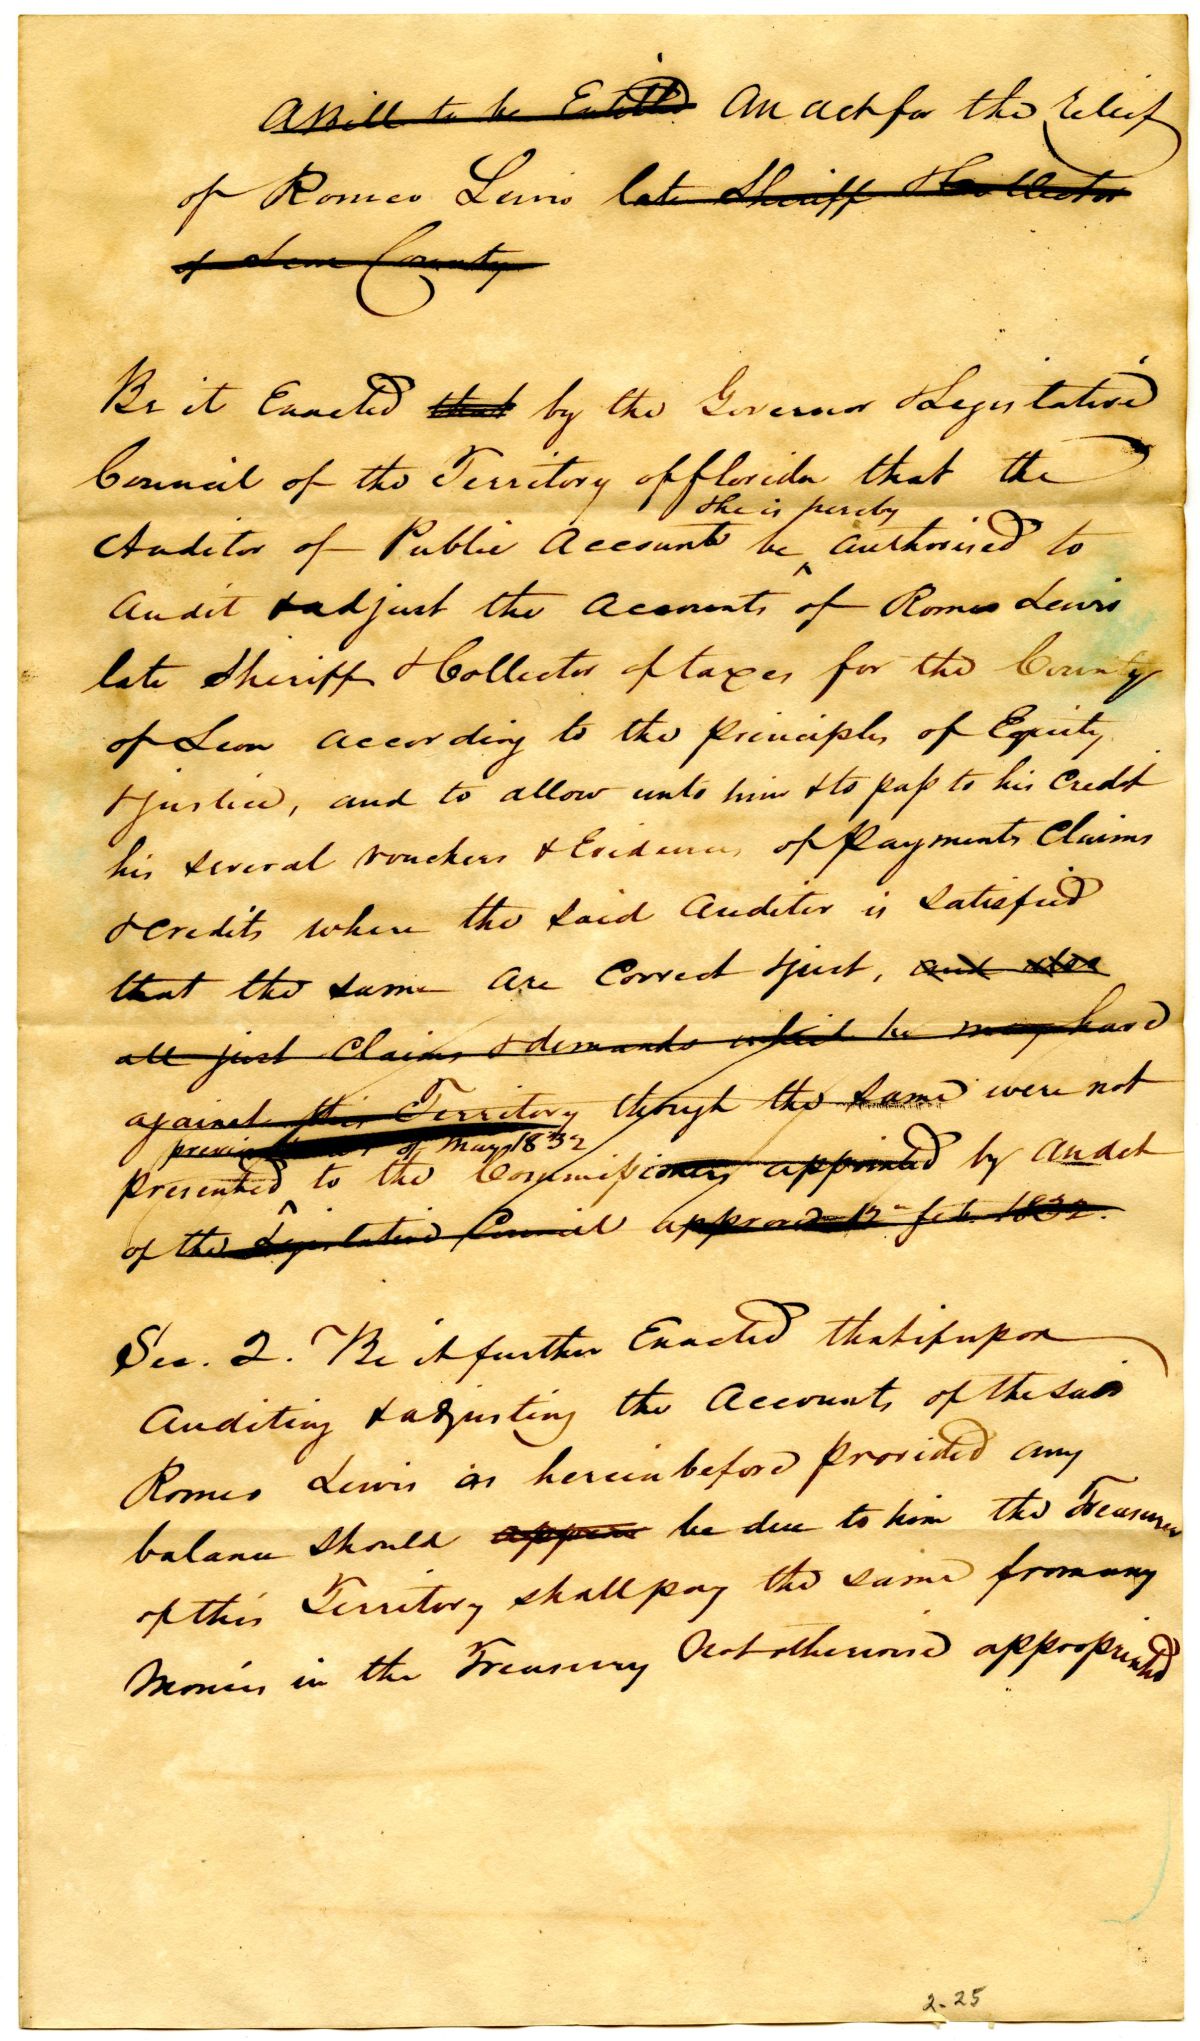 A Bill to be Entitled An act for the relief
of Romeo Lewis late Sheriff & Collector
of Leon County
Be it Enacted that by the Governor & Legislative
Council of the Territory of Florida that the
& he is hereby
Auditor of Public Accounts be authorised to
Audit & adjust the Accounts of Romeo Lewis
late Sheriff & Collector of taxes for the County
of Leon according to the principles of Equity
& justice, and to allow unto him & to pass to his Credit
his several vouchers & Evidences of Payments Claims
& Credits where the said Auditor is satisfied
that the same are Correct & just, and also
all just Claims & demands which he may have
against this Territory though the same were not
of May 1832
presented to the Commissioners appointed by an act
of the Legislative Council approved 12th Feb. 1832.
Sec. 2. Be it further Enacted that if upon
Auditing & adjusting the Accounts of the said
Romeo Lewis as herein before provided any
balance should appear be due to him the Treasurer
of this Territory shall pay the same from any
Monies in the Treasury Not otherwise appropriated
2-25